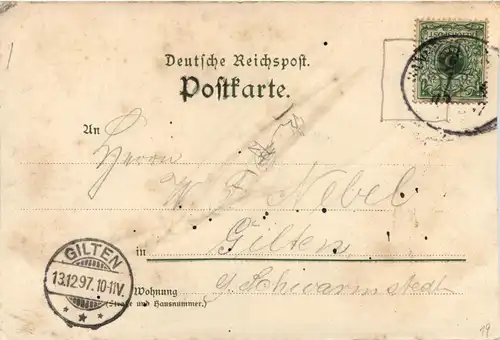 1
Deutsche Reichspost.
Postkarte.
An
Herrn
W. F. Nebel
in Gilten
b/ Schwarmstedt
Wohnung
(Straße und Hausnummer.)
GILTEN
13.12.97. 10-11V.
19